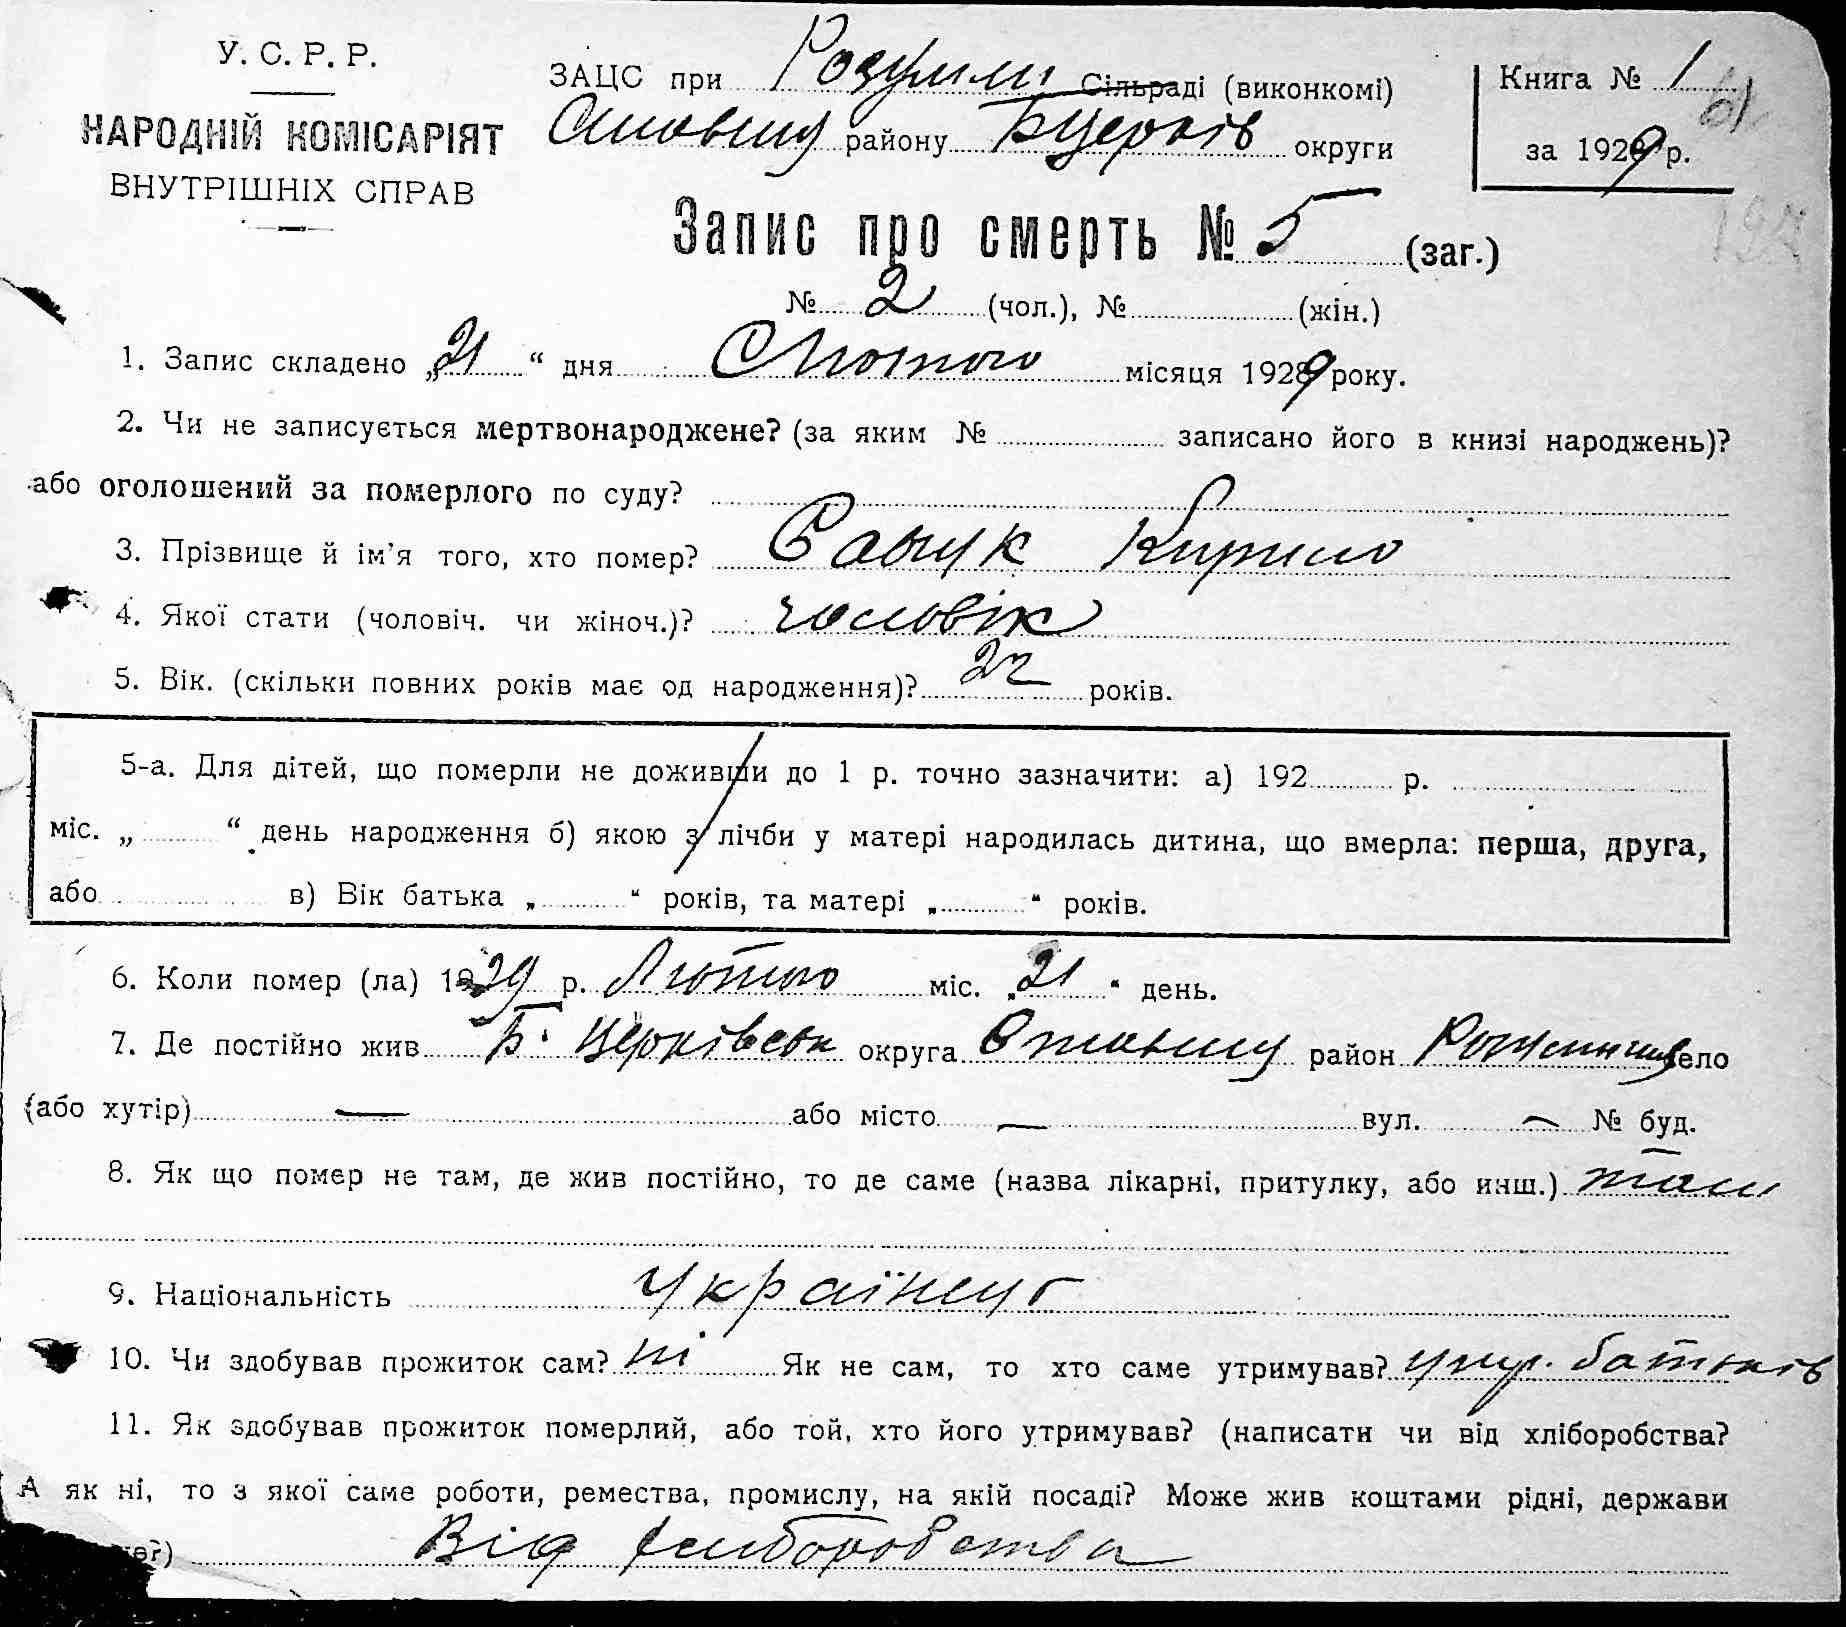 У. С. Р. Р.
НАРОДНІЙ КОМІСАРІЯТ
ВНУТРІШНІХ СПРАВ
ЗАЦС при Сільраді (виконкомі)
району Б Церків округи
Книга № 1
за 1929 р.
61
Запис про смерть № 5 (заг.)
№ 2 (чол.), № (жін.)
1. Запис складено „21“ дня Лютого місяця 1929 року.
2. Чи не записується мертвонароджене? (за яким № записано його в книзі народжень)?
або оголошений за померлого по суду?
3. Прізвище й ім'я того, хто помер? Савчук Кирило
4. Якої стати (чоловіч. чи жіноч.)? чоловік
5. Вік. (скільки повних років має од народження)? 22 років.
5-а. Для дітей, що померли не доживши до 1 р. точно зазначити: а) 192 р.
міс. „ “ день народження б) якою з лічби у матері народилась дитина, що вмерла: перша, друга,
або в) Вік батька „ “ років, та матері „ “ років.
6. Коли помер (ла) 1929 р. Лютого міс. „21“ день.
7. Де постійно жив Б. Церківськ округа район село
(або хутір) — або місто — вул. — № буд.
8. Як що помер не там, де жив постійно, то де саме (назва лікарні, притулку, або инш.) там
9. Національність Українец
10. Чи здобував прожиток сам? ні Як не сам, то хто саме утримував? батьків
11. Як здобував прожиток померлий, або той, хто його утримував? (написати чи від хліборобства?
А як ні, то з якої саме роботи, ремества, промислу, на якій посаді? Може жив коштами рідні, держави
Від хліборобства